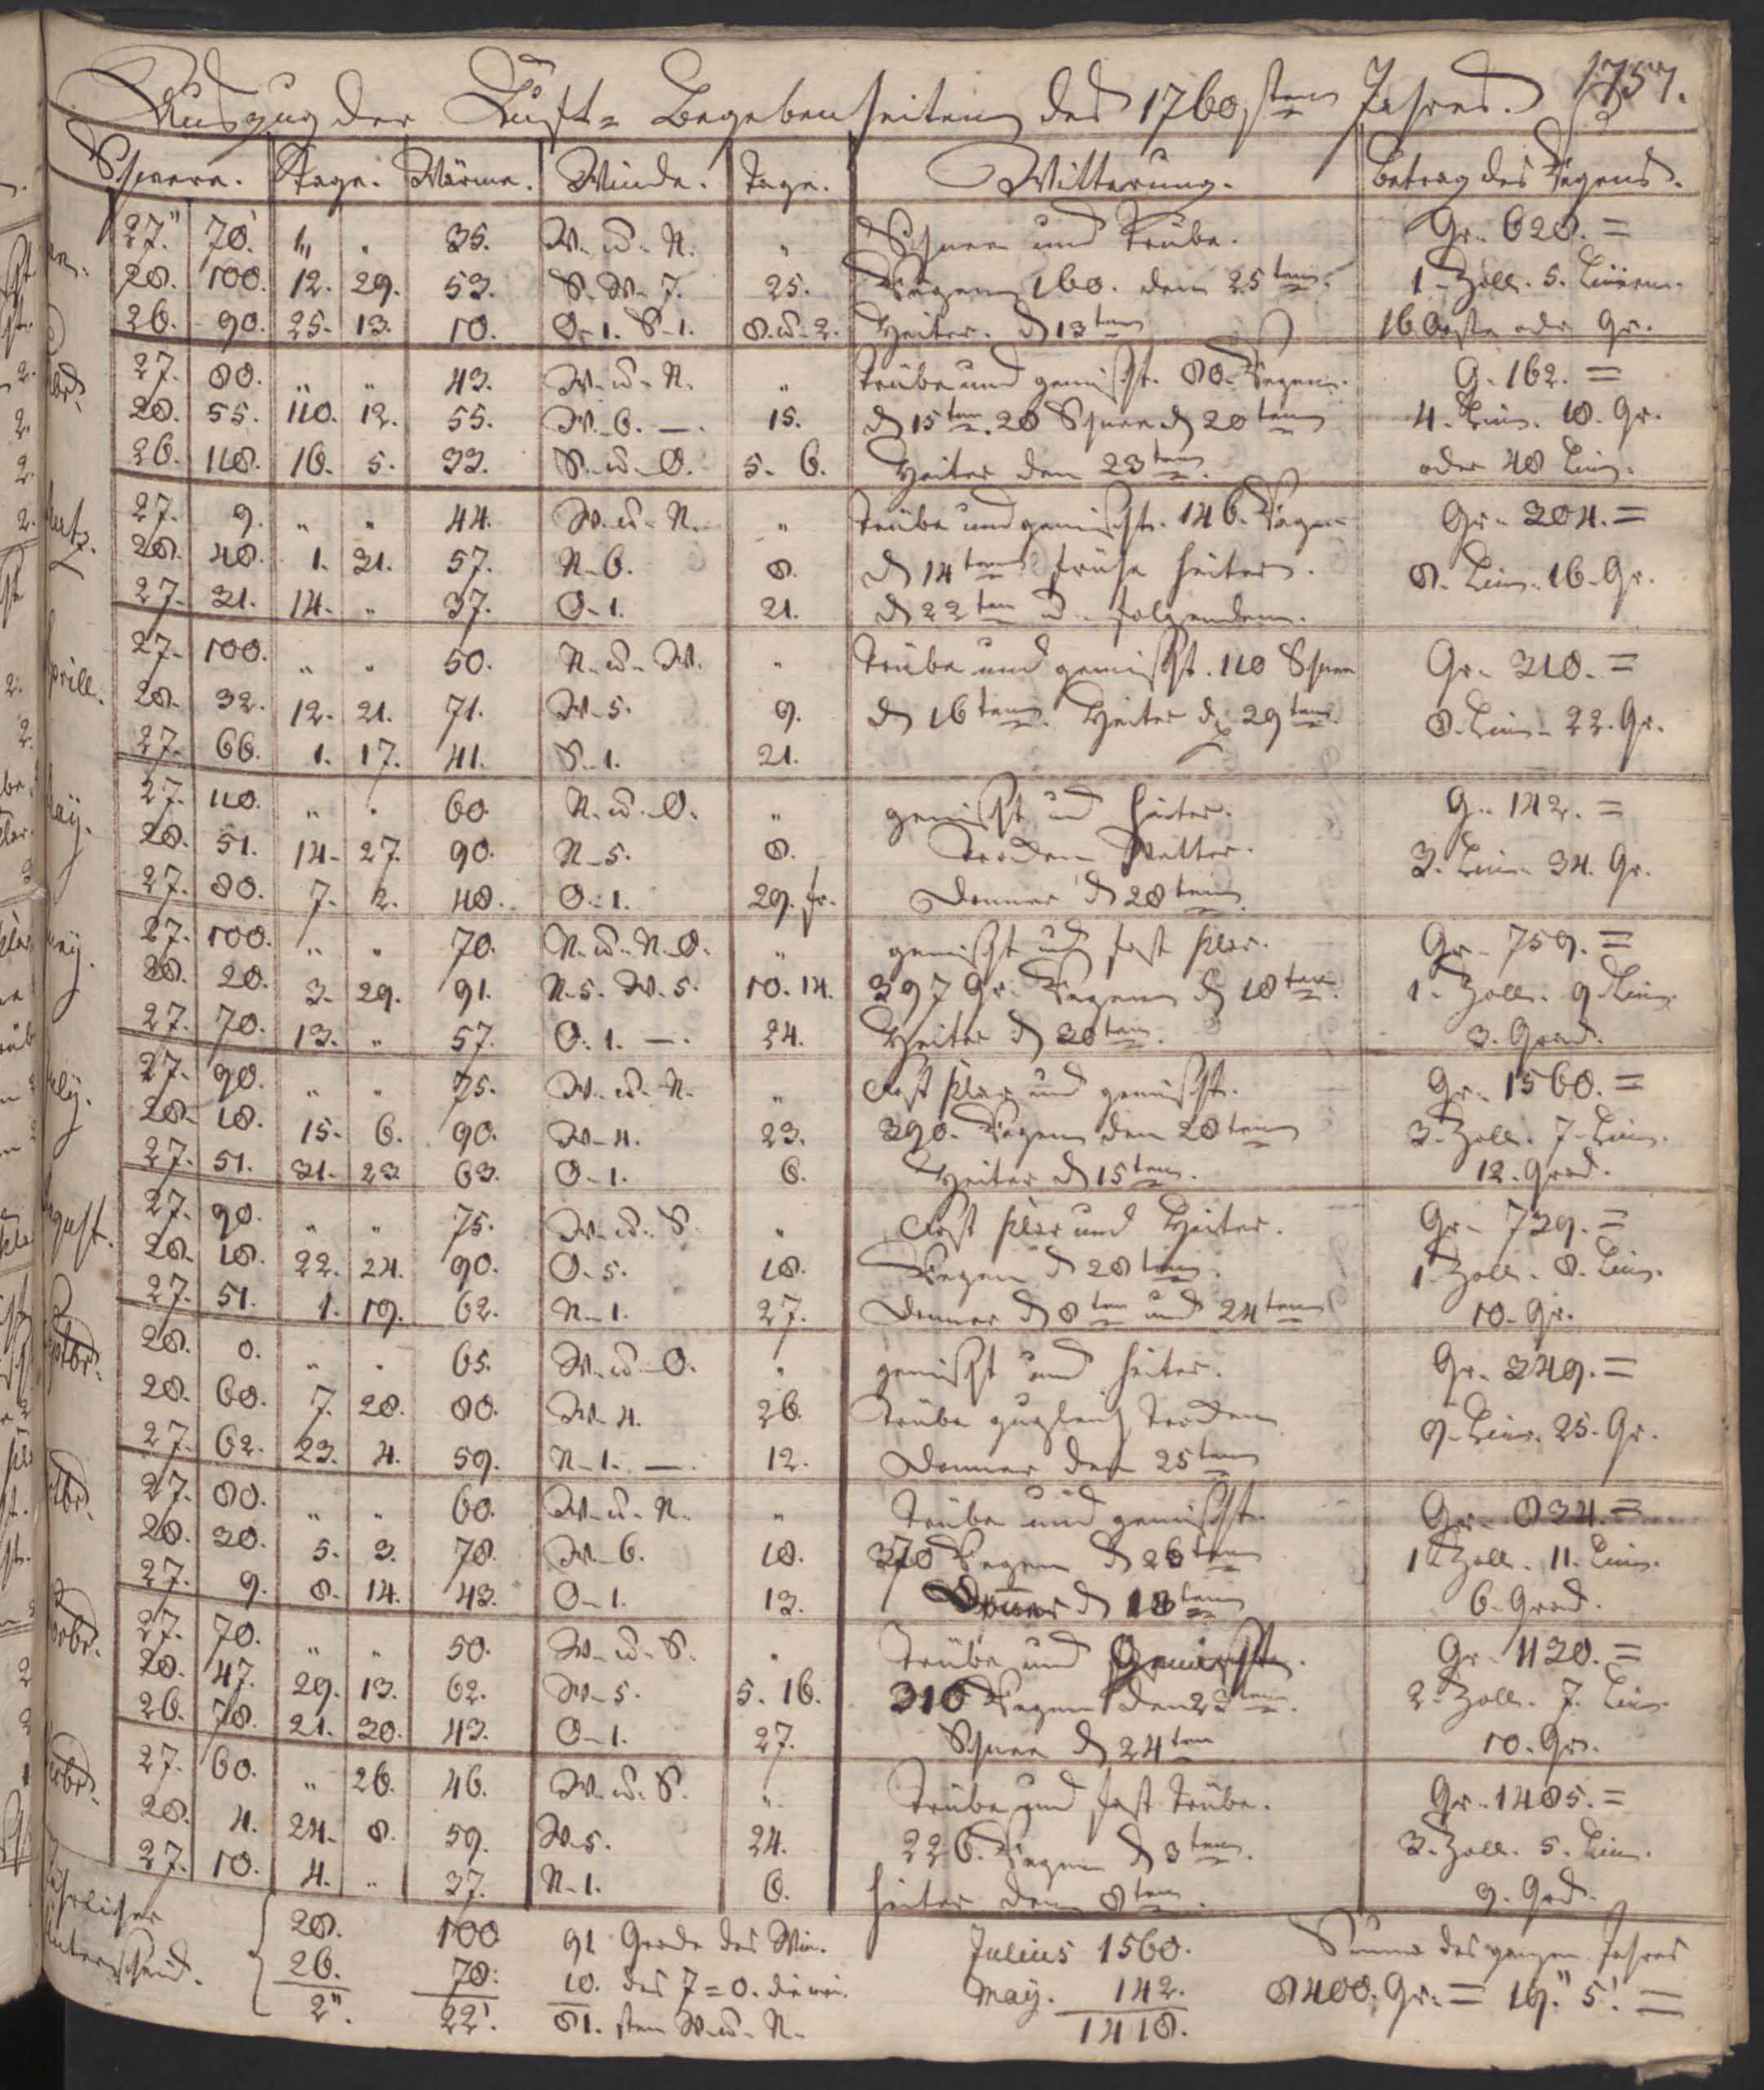 Auszug der Luft= Begebenheiten des 1760sten Jahres. 1757.
Schwere. Tage. Wärme. Winde. Tage. Witterung. Betrag des Regens.
27." 70.' 1,, " 35. W. u. N. " Schnee und trübe. Gr. 628. =
28. 100. 12. 29. 53. S. W. 7. 25. Regen 160. den 25ten. 1 Zoll. 5. Linien.
26. 90. 25. 13. 10. O. 1. S. 1. 8. u. 2. Heiter. d 13ten 16 oder Gr.
27. 80. " " 43. W. u. N. " trübe und gemischt. 80. Regen. G. 162. =
28. 55. 110. 12. 55. W. 6. — 15. d 15ten. 28 Schnee d 20ten 4. Lin. 18. Gr.
26. 118. 16. 5. 33. S. u. O. 5. 6. Heiter den 23ten. oder 48 Lin.
27. 9. " " 44. W. u. N. " trübe und gemischt. 146. Regen Gr. 304. =
28. 48. 1. 31. 57. N. 6. 8. d 14ten frühe heiter. 8. Lin. 16. Gr.
27. 31. 14. " 37. O. 1. 21. d 22ten u. folgenden.
prill. 27. 100. " " 50. N. u. W. " trübe und gemischt. 110 Schnee Gr. 310. =
28. 32. 12. 21. 71. W. 5. 9. d 16ten. Heiter d 29ten. 8. Lin. 22. Gr.
27. 66. 1. 17. 41. S. 1. 21.
aÿ. 27. 110. " " 60. N. u. O. " gemischt und heiter. G. 142. =
28. 51. 14. 27. 90. N. 5. 8. trocken Wetter. 3. Lin. 34. Gr.
27. 80. 7. 2. 48. O. 1. 29. fr. Donner d 28ten.
27. 100. " " 70. N. u. N. O. " gemischt und fast klar. Gr. 759. =
28. 20. 3. 29. 91. N. 5. W. 5. 10. 14. 397 Gr. Regen d 18ten. 1. Zoll. 9 Lin.
27. 70. 13. " 57. O. 1. — 24. Heiter d 30ten. 3. Grad.
27. 90. " " 75. W. u. N. " fast klar und gemischt. Gr. 1560. =
28. 18. 15. 6. 90. W. 4. 23. 390. Regen den 28ten 3. Zoll. 7. Lin.
27. 51. 31. 23. 63. O. 1. 6. Heiter d 15ten. 12. Grad.
gust. 27. 90. " " 75. W. u. S. " fast klar und Heiter. Gr. 739. =
28. 18. 22. 24. 90. O. 5. 18. Regen d 28ten. 1 Zoll. 8. Lin.
27. 51. 1. 19. 62. N. 1. 27. Donner d 8ten und 24ten 10. Gr.
28. 0. " " 65. W. u. O. " gemischt und heiter. Gr. 349. =
28. 60. 7. 28. 80. W. 4. 26. trübe zugleich trocken 9. Lin. 25. Gr.
27. 62. 23. 4. 59. N. 1. — 12. Donner den 25ten
27. 80. " " 60. W. u. N. " trübe und gemischt. Gr. 834. =
28. 30. 5. 3. 78. W. 6. 18. 370 Regen d 26ten 1 Zoll. 11. Lin.
27. 9. 8. 14. 43. O. 1. 13. Donner d 18ten 6. Grad.
27. 70. " " 50. W. u. S. " trübe und Gemischt. Gr. 1130. =
28. 47. 29. 13. 62. W. 5. 5. 16. 310 Regen den 23ten. 2. Zoll. 7. Lin.
26. 78. 21. 30. 43. O. 1. 27. Schnee d 24ten 10. Gr.
27. 60. " 26. 46. W. u. S. " trübe und fast trübe. Gr. 1485. =
28. 4. 24. 8. 59. W. 5. 24. 226. Regen d 3ten. 3. Zoll. 5. Lin.
27. 10. 4. " 37. N. 1. 6. heiter den 8ten. 9. Grd.
Jährlicher 28. 100 91 Grade des Win. Julius 1560. Summe des ganzen Jahres
Unterscheid. 26. 78. 10. des 7=0. May. 142. 8400. Gr. = 19." 5.' =
2". 22'. 81. W. u. N. 1418.